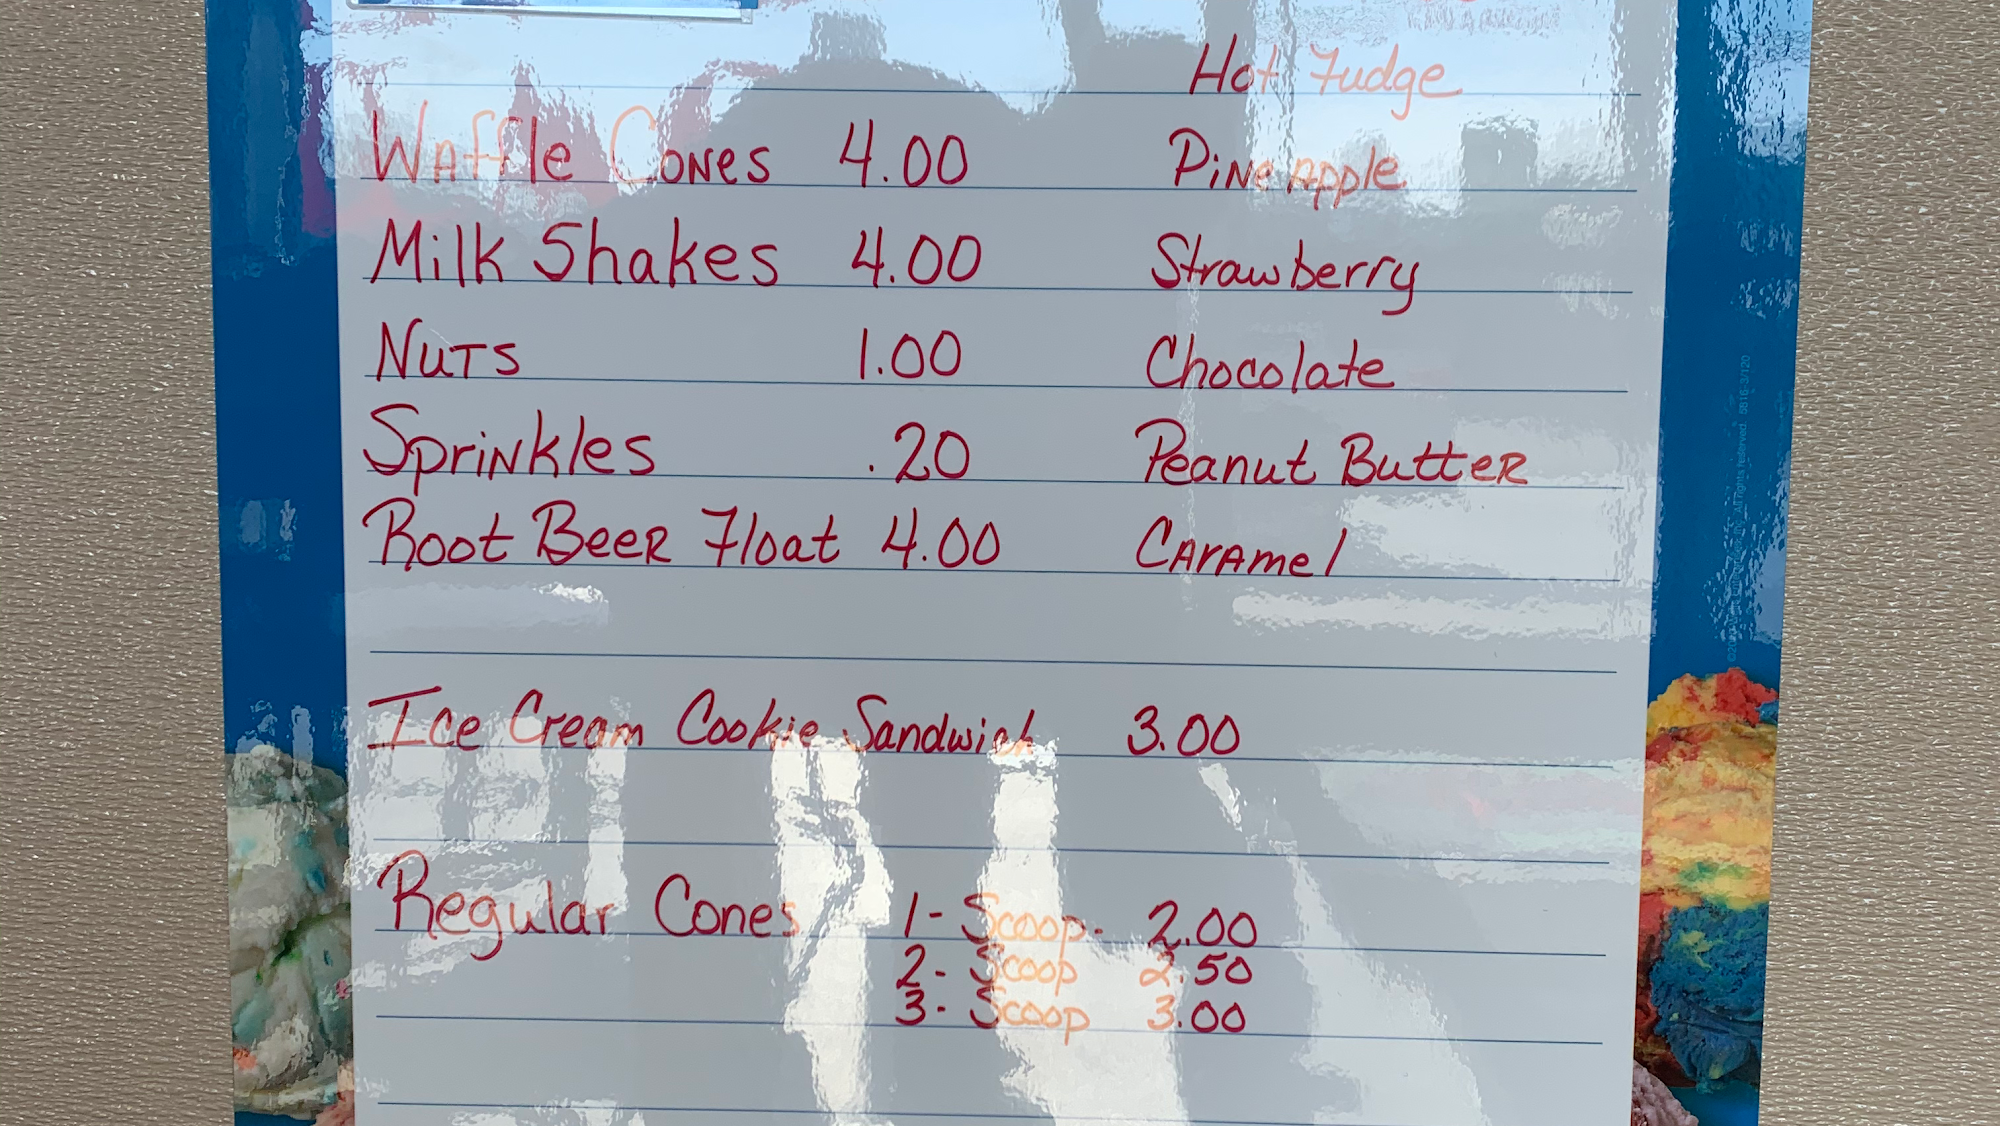 Hot Fudge
Waffle Cones 4.00 Pineapple
Milk Shakes 4.00 Strawberry
Nuts 1.00 Chocolate
Sprinkles .20 Peanut Butter
Root Beer Float 4.00 Caramel
Ice Cream Cookie Sandwich 3.00
Regular Cones 1- Scoop- 2.00
2- Scoop 2.50
3- Scoop 3.00
All rights reserved.